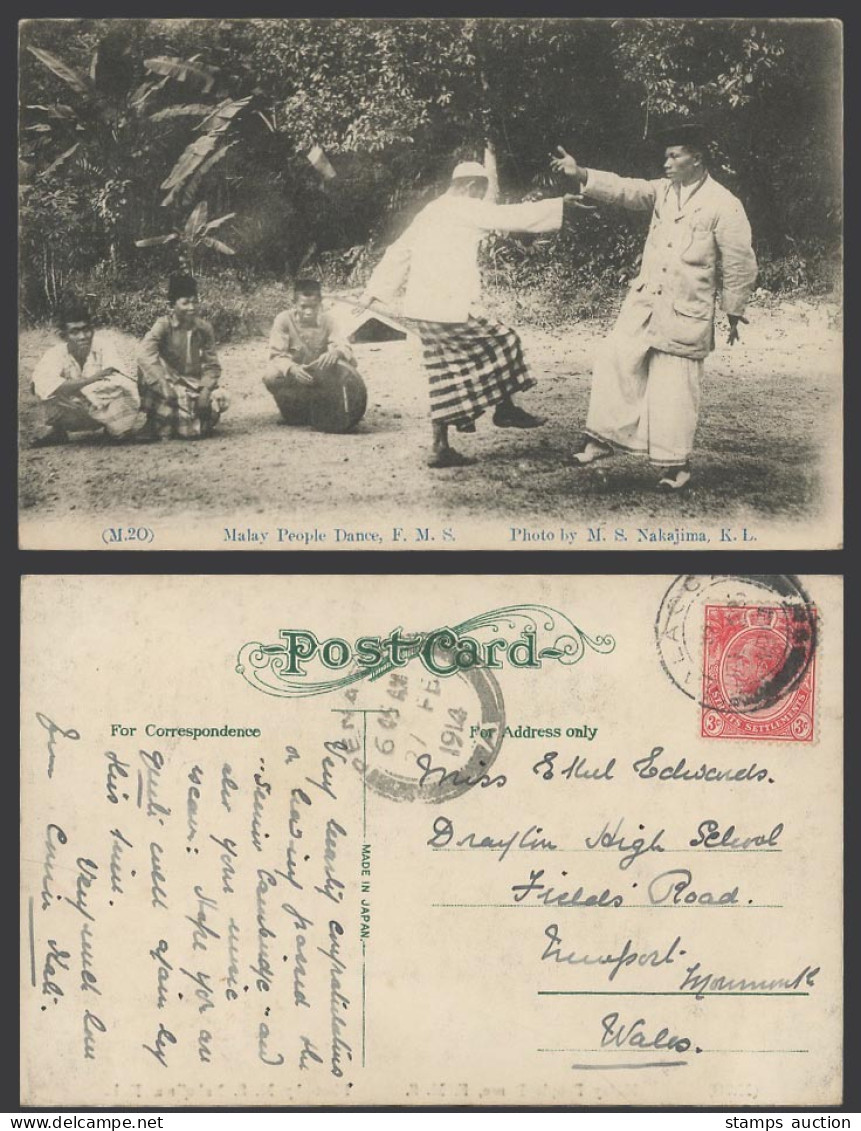 (M.20) Malay People Dance, F. M. S. Photo by M. S. Nakajima, K. L.
Post Card
For Correspondence
For Address only
MADE IN JAPAN.
STRAITS SETTLEMENTS
3c 3c
PENANG
6 45 AM
27 FE
1914
Miss Ethel Edwards.
Drayton High School
Fields' Road.
Newport
Monmouth
Wales.
Very hearty congratulations
on having passed the
"Senior Cambridge" and
also your music
exam: Hope you are
quite well again by
this time.
Very much love
from Cousin
stamps auction